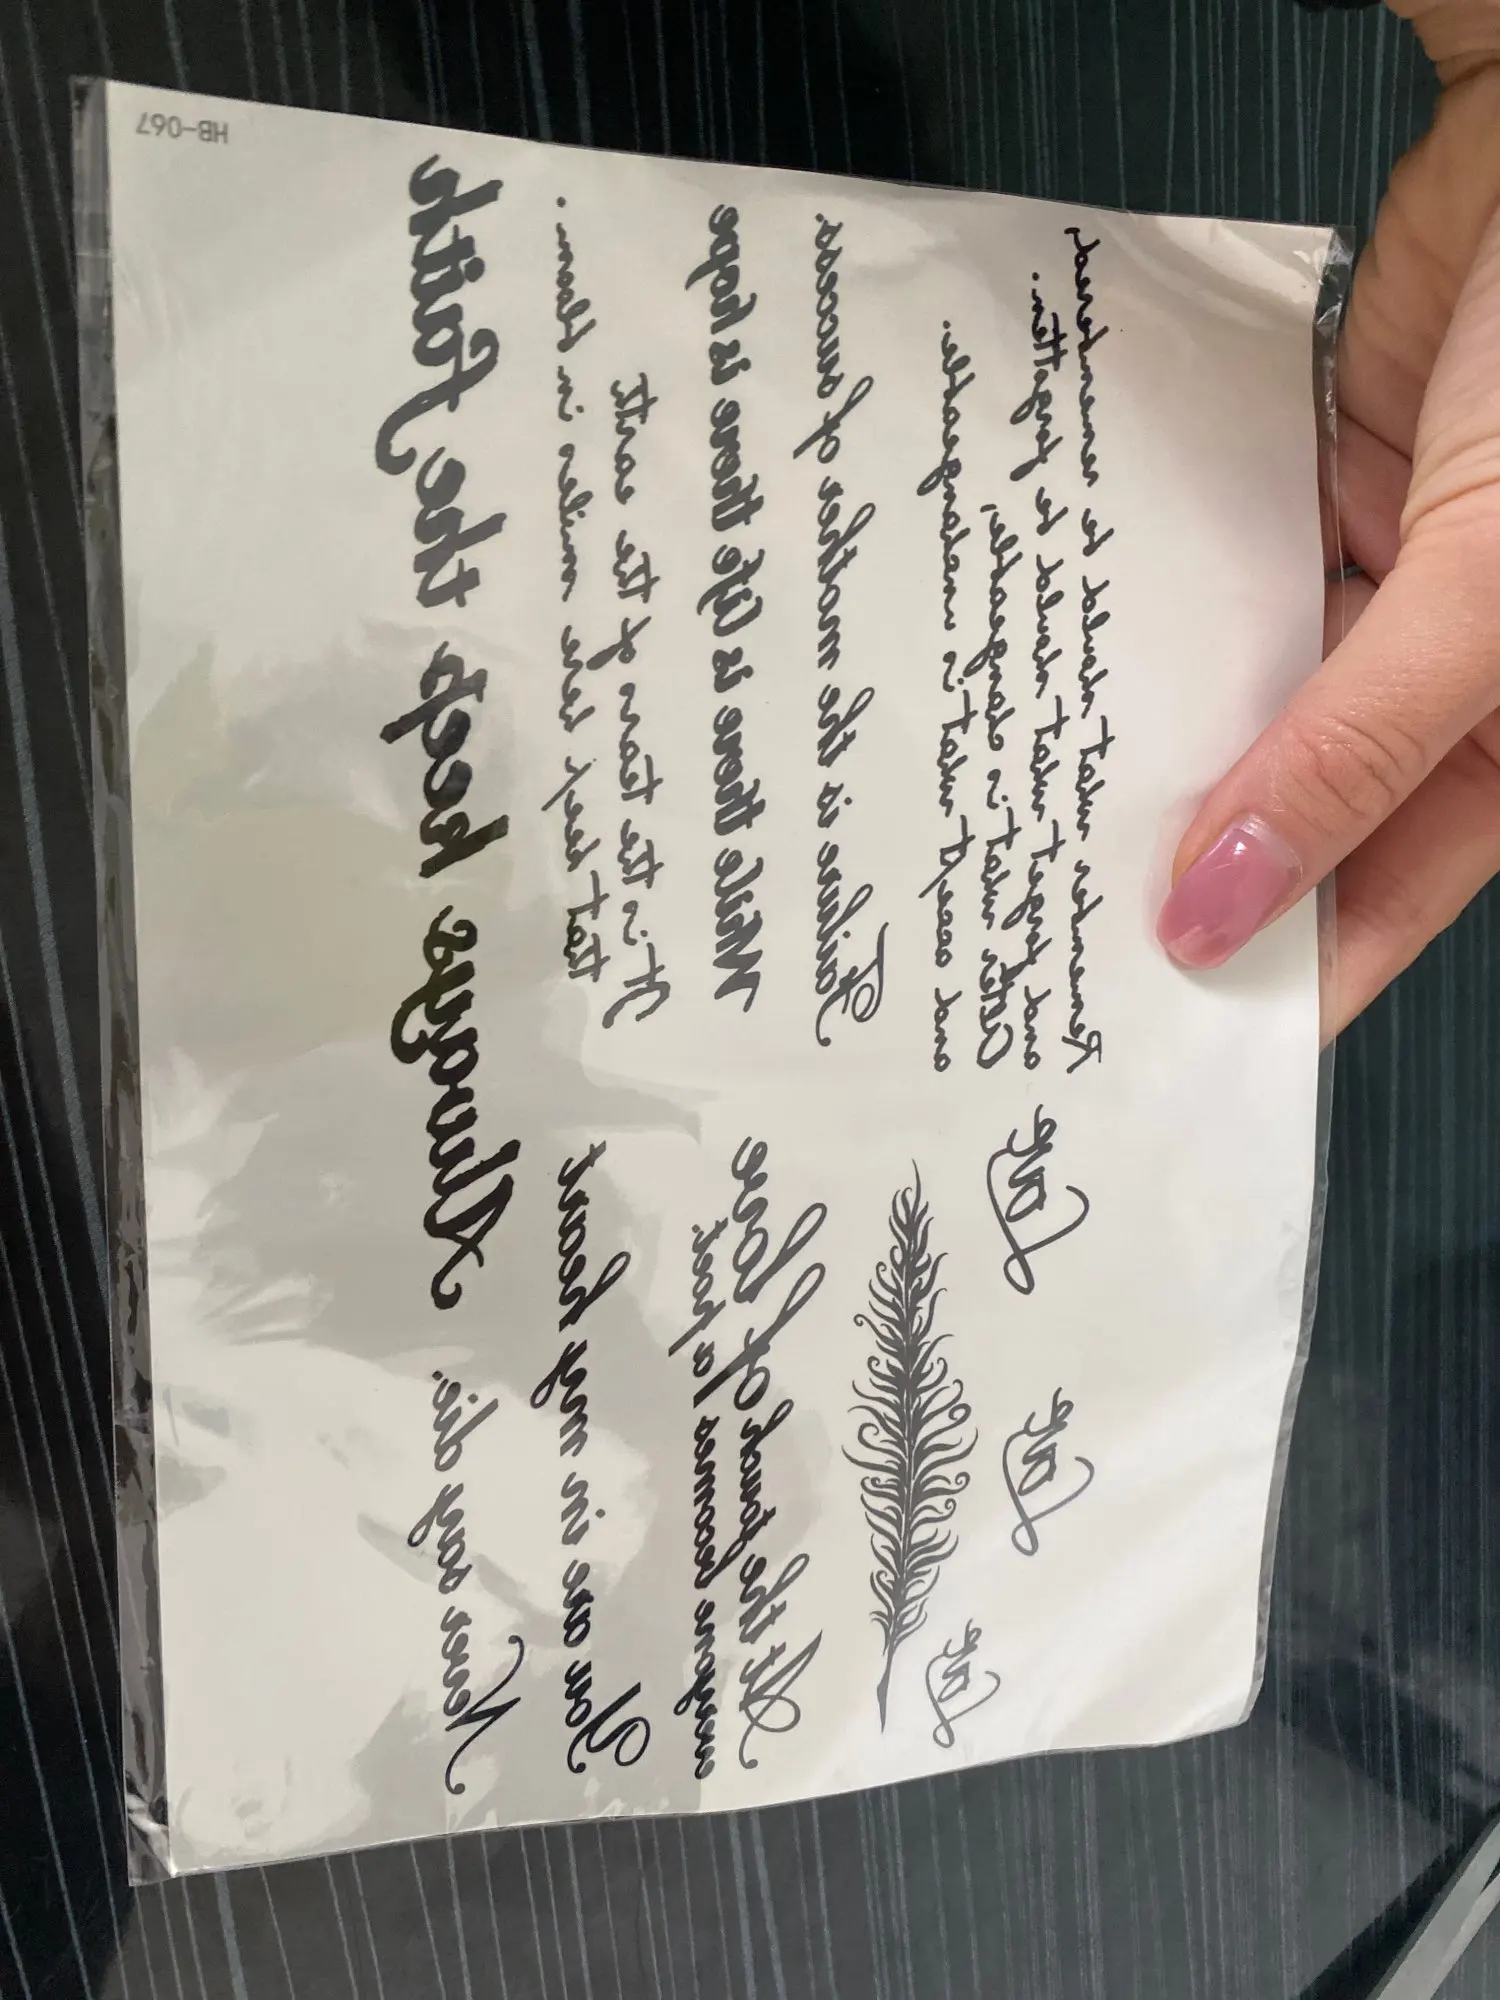 Remember what should be remembered,
and forget what should be forgotten.
Alter what is changeable,
and accept what is unchangeable.
Failure is the mother of success.
While there is life there is hope
It is the tears of the earth
that keep her smiles in bloom.
Always keep the Faith
Love
Love
Love
At the touch of love
everyone becomes a poet.
You are in my heart
Never say die.
HB-067